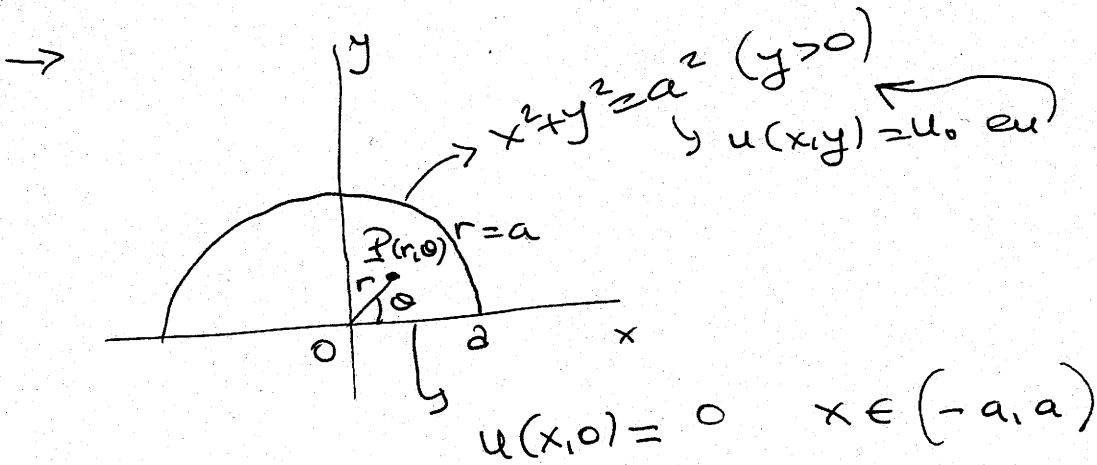 →
y
x²+y²=a² (y>0)
u(x,y)=u₀ en
r=a
P(r,θ)
r
θ
0
a
x
u(x,0)= 0 x∈(-a,a)